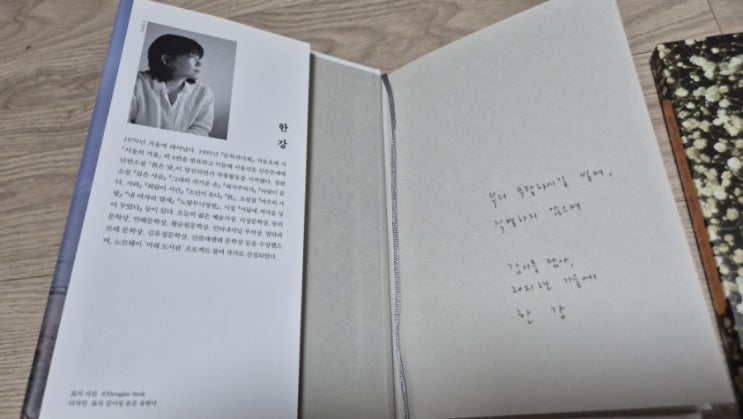 한
강
1970년 겨울에 태어났다. 1993년 『문학과사회』 겨울호에 시
「서울의 겨울」 외 4편을 발표하고 이듬해 서울신문 신춘문예에
단편소설 「붉은 닻」이 당선되며 작품활동을 시작했다. 장편
소설 『검은 사슴』 『그대의 차가운 손』 『채식주의자』 『바람이 분
다, 가라』 『희랍어 시간』 『소년이 온다』 『흰』, 소설집 『여수의 사
랑』 『내 여자의 열매』 『노랑무늬영원』, 시집 『서랍에 저녁을 넣
어 두었다』 등이 있다. 오늘의 젊은 예술가상, 이상문학상, 동리
문학상, 만해문학상, 황순원문학상, 인터내셔널 부커상, 말라파
르테 문학상, 김유정문학상, 산클레멘테 문학상 등을 수상했으
며, 노르웨이 '미래 도서관' 프로젝트 참여 작가로 선정되었다.
표지 사진 ©Douglas Seok
디자인 표지 김이정 본문 유현아
부디 무탈하시길 빌며,
작별하지 않으며
감사를 담아,
2021년 가을에
한 강